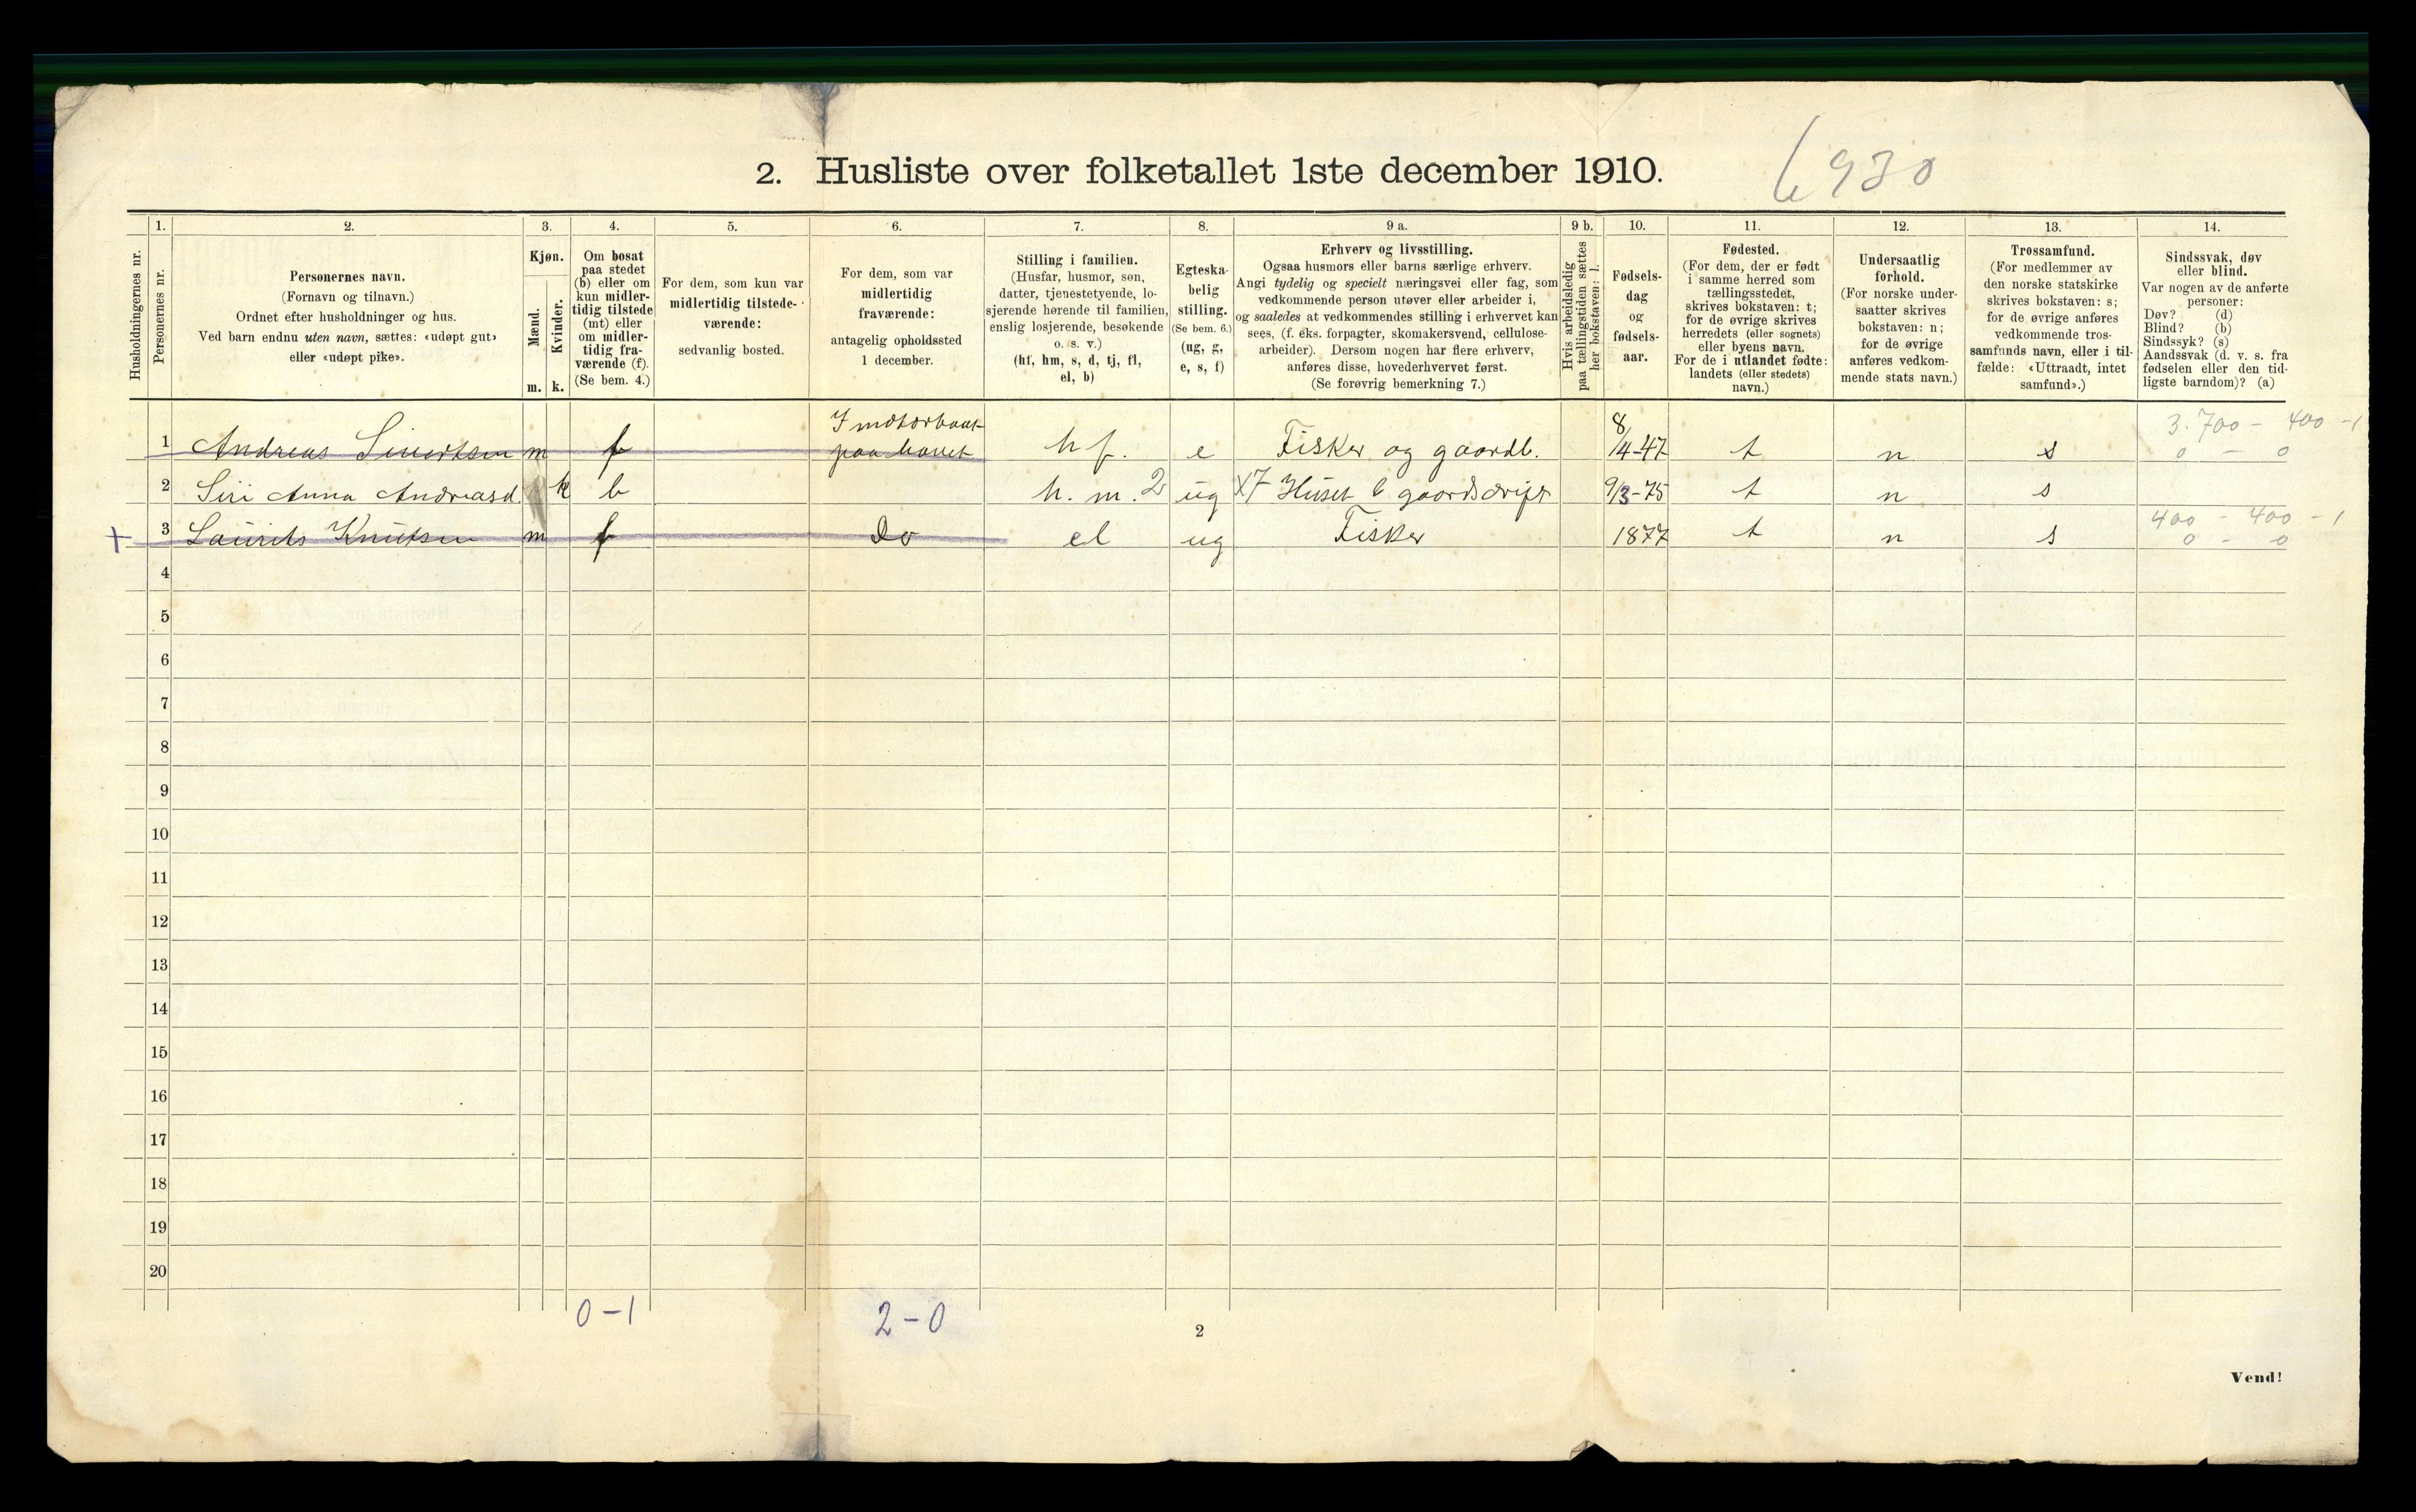 2. Husliste over folketallet 1ste december 1910.
6930
Husholdningernes nr.
1.
Personernes nr.
2.
Personernes navn.
(Fornavn og tilnavn.)
Ordnet efter husholdninger og hus.
Ved barn endnu uten navn, sættes: «udøpt gut»
eller «udøpt pike».
3.
Kjøn.
Mænd.
Kvinder.
m. k.
4.
Om bosat
paa stedet
(b) eller om
kun midler-
tidig tilstede
(mt) eller
om midler-
tidig fra-
værende (f).
(Se bem. 4.)
5.
For dem, som kun var
midlertidig tilstede-
værende:
sedvanlig bosted.
6.
For dem, som var
midlertidig
fraværende:
antagelig opholdssted
1 december.
7.
Stilling i familien.
(Husfar, husmor, søn,
datter, tjenestetyende, lo-
sjerende hørende til familien,
enslig losjerende, besøkende
o. s. v.)
(hf, hm, s, d, tj, fl,
el, b)
8.
Egteska-
belig
stilling.
(Se bem. 6.)
(ug, g,
e, s, f)
9 a.
Erhverv og livsstilling.
Ogsaa husmors eller barns særlige erhverv.
Angi tydelig og specielt næringsvei eller fag, som
vedkommende person utøver eller arbeider i,
og saaledes at vedkommendes stilling i erhvervet kan
sees, (f. eks. forpagter, skomakersvend, cellulose-
arbeider). Dersom nogen har flere erhverv,
anføres disse, hovederhvervet først.
(Se forøvrig bemerkning 7.)
9 b.
Hvis arbeidsledig
paa tællingstiden sættes
her bokstaven: l.
10.
Fødsels-
dag
og
fødsels-
aar.
11.
Fødested.
(For dem, der er født
i samme herred som
tællingsstedet,
skrives bokstaven: t;
for de øvrige skrives
herredets (eller sognets)
eller byens navn.
For de i utlandet fødte:
landets (eller stedets)
navn.)
12.
Undersaatlig
forhold.
(For norske under-
saatter skrives
bokstaven: n;
for de øvrige
anføres vedkom-
mende stats navn.)
13.
Trossamfund.
(For medlemmer av
den norske statskirke
skrives bokstaven: s;
for de øvrige anføres
vedkommende tros-
samfunds navn, eller i til-
fælde: «Uttraadt, intet
samfund».)
14.
Sindssvak, døv
eller blind.
Var nogen av de anførte
personer:
Døv? (d)
Blind? (b)
Sindssyk? (s)
Aandssvak (d. v. s. fra
fødselen eller den tid-
ligste barndom)? (a)
1 Andreas Sivertsen m f I motorbaat paa havet h f. e Fisker og gaardb. 8/4-47 t n s 3.700 - 400 -1
0 - 0
2 Siri Anna Andreasd. k b h. m. 2 ug X7 Huset & gaardsdrift 9/3-75 t n s
+ 3 Laurits Knutsen m f Do el ug Fisker 1877 t n s 400 - 400 - 1
0 - 0
4
5
6
7
8
9
10
11
12
13
14
15
16
17
18
19
20
0-1
2-0
2
Vend!